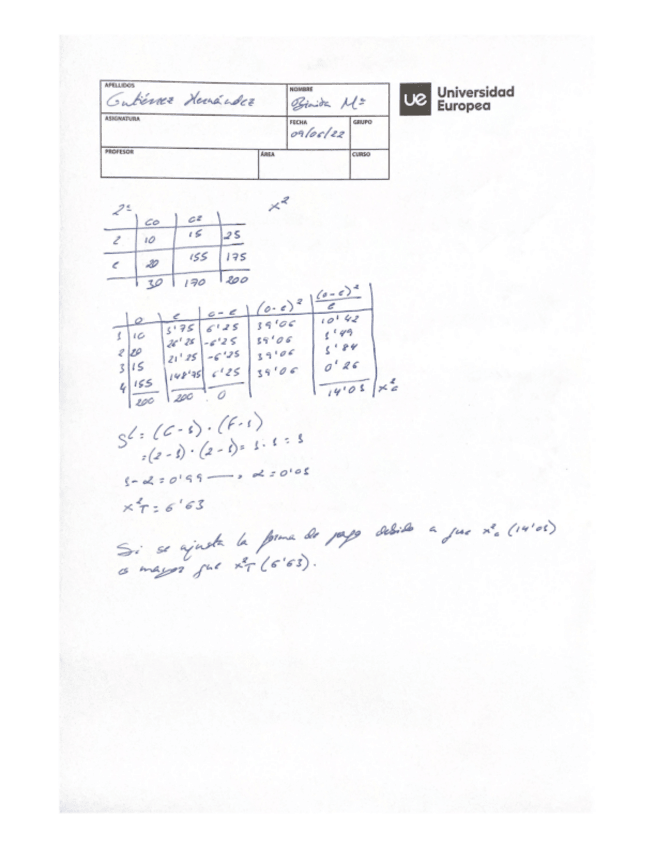 APELLIDOS
Gutiérrez Hernández
NOMBRE
Mª
ue Universidad Europea
ASIGNATURA
FECHA
09/06/22
GRUPO
PROFESOR
ÁREA
CURSO
2º x²
CO C2
2 10 15 25
c 20 155 175
30 170 200
o e o-e (o-e)² (o-e)²/e
1 10 3'75 6'25 39'06 10'42
2 20 26'25 -6'25 39'06 1'49
3 15 21'25 -6'25 39'06 1'84
4 155 148'75 6'25 39'06 0'26
200 200 0 14'01 x²c
= (2-1) · (2-1) = 1 · 1 = 1
1-α = 0'99 α = 0'01
x²T = 6'63
Si se ajusta la forma de pago debido a que x²c (14'01)
a mayor que x²T (6'63).